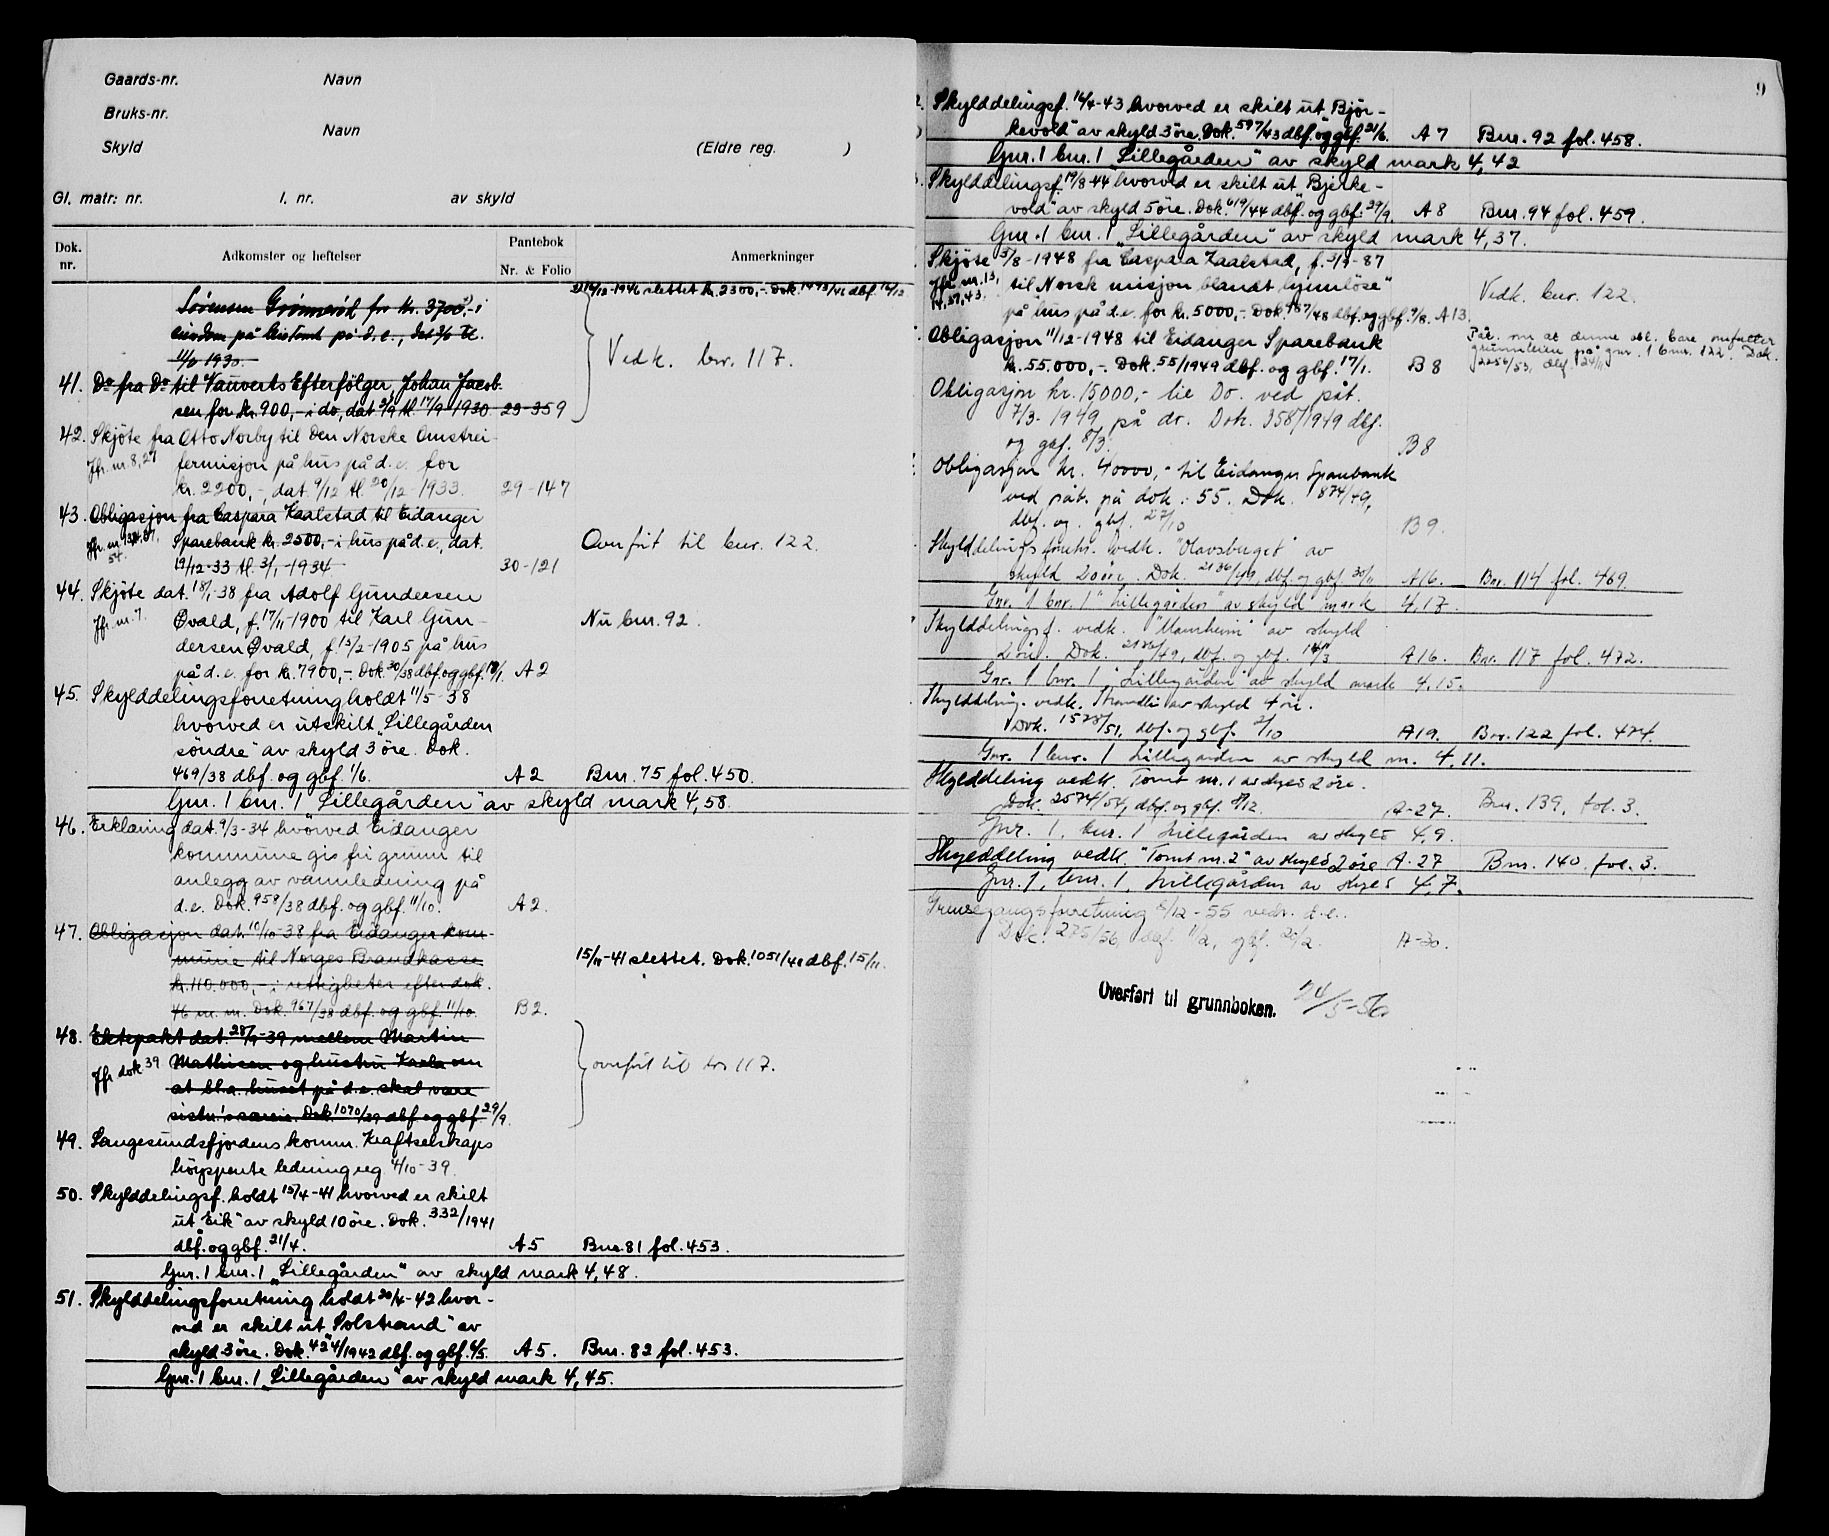 Gaards-nr. Navn
Bruks-nr.
Navn
Skyld (Eldre reg. )
Gl. matr: nr. l. nr. av skyld
Dok. nr. Adkomster og heftelser Pantebok Nr. & Folio Anmerkninger
Sørensen Grønnerød for kr. 3700,- i 2) 16/12-1946 slettet kr. 2300,-. Dok. 1493/46 dbf. 16/12
eiendom på bortomt på d.e., dat 2/6 tl.
11/6 1930.
Vedk. bnr. 117.
41. Do fra Do til Vauverts Efterfølger, Johan Jacob-
sen for kr. 900,- i do, dat 2/9 tl. 17/9-1930 23-359
42. Skjöte fra Otto Norby til Den Norske Omstrei-
Jfr. nr. 8, 27 fermisjon på hus på d.e. for
kr. 2200,-, dat. 9/12 tl. 20/12-1933. 29-147
43. Obligasjon fra Caspara Kaalstad til Eidanger
Sparebank kr. 2500,- i hus på d.e., dat. Overfört til bnr. 122.
54.
19/12-33 tl. 3/1-1934. 30-121
44. Skjöte dat. 18/1-38 fra Adolf Gundersen
Jfr. nr. 7. Övald, f. 17/11-1900 til Karl Gun- Nu bnr. 92.
dersen Övald, f. 15/2-1905 på hus
på d.e. for kr. 7900,-. Dok. 30/38 dbf. og gbf. 19/1 A 2
45. Skylddelingsforretning holdt 11/5-38
hvorved er utskilt „Lillegården
söndre" av skyld 3 öre. Dok.
469/38 dbf. og gbf. 1/6. A 2 Bnr. 75 fol. 450.
Gnr. 1 bnr. 1 „Lillegården" av skyld mark 4,58.
46. Erklæring dat. 9/3-34 hvorved Eidanger
kommune gis fri grunn til
anlegg av vannledning på
d.e. Dok. 958/38 dbf. og gbf. 11/10. A 2.
47. Obligasjon dat. 10/10-38 fra Eidanger kom-
mune til Norges Brandkasse 15/11-41 slettet. Dok. 1051/41 dbf. 15/11.
kr. 110.000,- i rettigheter efter dok.
46 m.m. Dok. 967/38 dbf. og gbf. 11/10. B 2.
48. Ektepakt dat. 28/9-39 mellem Martin
Jfr dok 39 Mathisen og hustru Karla om overfört til bnr 117.
at bl.a. huset på d.e. skal være
sistn.'s særeie. Dok 1070/39 dbf og gbf 29/9.
49. Langesundsfjordens komm. Kraftselskaps
höyspente ledning reg. 4/10-39.
50. Skylddelingsf. holdt 15/4-41 hvorved er skilt
ut „Eik" av skyld 10 öre. Dok. 332/1941
dbf. og gbf. 21/4. A 5 Bnr. 81 fol. 453.
Gnr. 1 bnr. 1 „Lillegården" av skyld mark 4,48.
51. Skylddelingsforretning holdt 20/4-42 hvor-
ved er skilt ut „Solstrand" av
skyld 3 öre. Dok. 424/1942 dbf. og gbf. 6/5. A 5. Bnr. 82 fol. 453.
Gnr. 1 bnr. 1 „Lillegården" av skyld mark 4,45.
9
Skylddelingsf. 16/4-43 hvorved er skilt ut „Björ-
kevold" av skyld 3 öre. Dok. 597/43 dbf. og gbf. 21/6. A 7 Bnr. 92 fol. 458.
Gnr. 1 bnr. 1 „Lillegården" av skyld mark 4,42
Skylddelingsf. 19/8-44 hvorved er skilt ut „Bjerke-
vold" av skyld 5 öre. Dok. 619/44 dbf. og gbf. 29/9. A 8 Bnr. 94 fol. 459.
Gnr. 1 bnr. 1 „Lillegården" av skyld mark 4,37.
Skjöte 5/8-1948 fra Caspara Kaalstad, f. 3/9-87
Jfr. nr. 13, til „Norsk misjon blandt hjemlöse" Vedk. bnr. 122.
14, 37, 43. på hus på d.e. for kr. 5000,-. Dok. 787/48 dbf. og gbf. 9/8. A 13.
Obligasjon 11/12-1948 til Eidanger Sparebank Påt. om at denne obl. bare omfatter
kr. 55.000,-. Dok. 55/1949 dbf. og gbf. 17/1. B 8 grunnleien på gnr. 1 bnr. 122. Dok.
2256/53, dbf. 24/11
Obligasjon kr. 15000,- til Do. ved påt.
7/3-1949 på do. Dok. 358/1949 dbf.
og gbf. 8/3. B 8
Obligasjon kr. 40000,- til Eidanger Sparebank
ved påt. på dok.: 55. Dok. 1874/49,
dbf. og gbf. 27/10 B 9.
Skylddelingsforretn. vedk. "Olavsberget" av
skyld 20 öre. Dok. 2136/49, dbf. og gbf. 30/11 A 16. Bnr. 114 fol. 469.
Gnr. 1 bnr. 1 "Lillegården" av skyld mark 4,17.
Skylddelingsf. vedk. "Mannheim" av skyld
2 öre. Dok. dbf. og gbf. A 16. Bnr. 117 fol. 472.
Gnr. 1 bnr. 1 "Lillegården" av skyld mark 4,15.
Skylddeling. vedk. Strandli av skyld 4 öre.
Dok. 1528/51, dbf. og gbf. 2/10 A 19. Bnr. 122 fol. 474.
Gnr. 1 bnr. 1 Lillegården av skyld m. 4,11.
Skylddeling vedk. Tomt nr. 1 av skyld 2 öre.
Dok. 2574/54, dbf. og gbf. 8/12. A-27. Bnr. 139, fol. 3.
Gnr. 1, bnr. 1 Lillegården av skyld 4,9.
Skylddeling vedk. "Tomt nr. 2" av skyld 2 öre A-27 Bnr. 140. fol. 3.
Gnr. 1, bnr. 1. Lillegården av skyld 4,7.
Grensegangsforretning 5/12-55 vedr. d.e.
Dok. 275/56, dbf. 11/2, gbf. 20/2. A-30.
Overført til grunnboken. 24/5-56